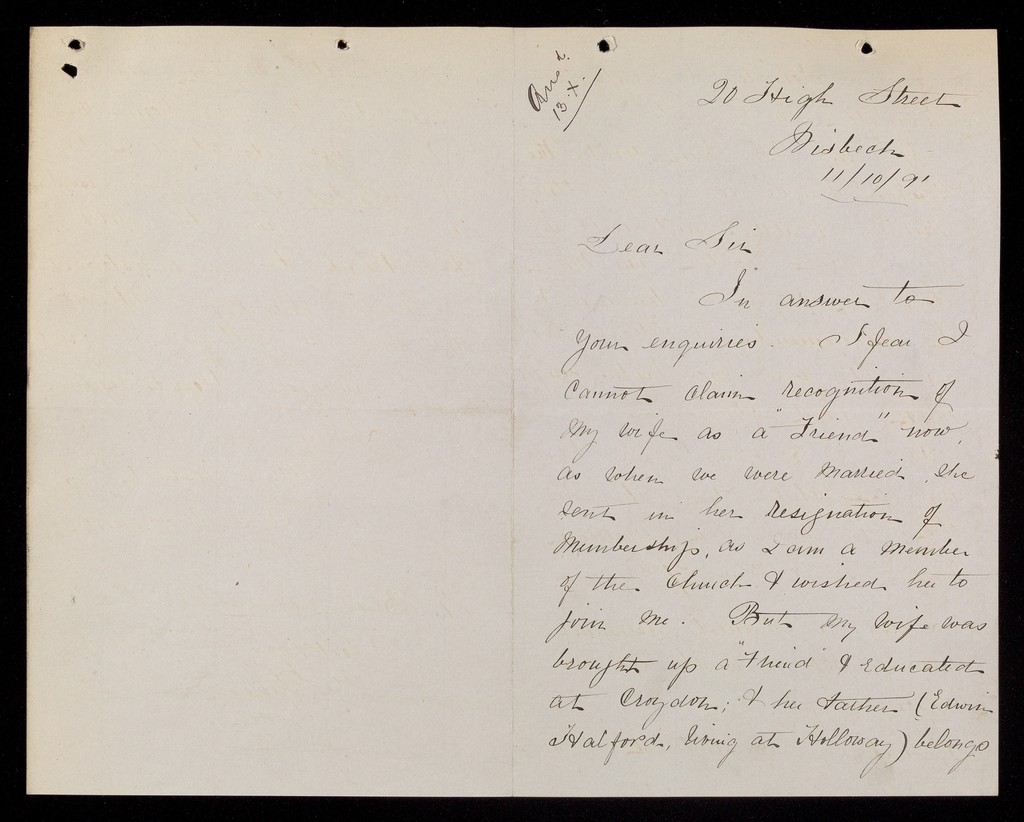 Ansd.
13.X.
20 High Street
Wisbech
11/10/91
Dear Sir
In answer to
your enquiries. I fear I
cannot claim recognition of
my wife as a "Friend" now,
as when we were married, she
sent in her resignation of
Membership, as I am a member
of the Church & wished her to
join me. But my wife was
brought up a "Friend" & educated
at Croydon; & her father (Edwin
Halford, living at Holloway) belongs